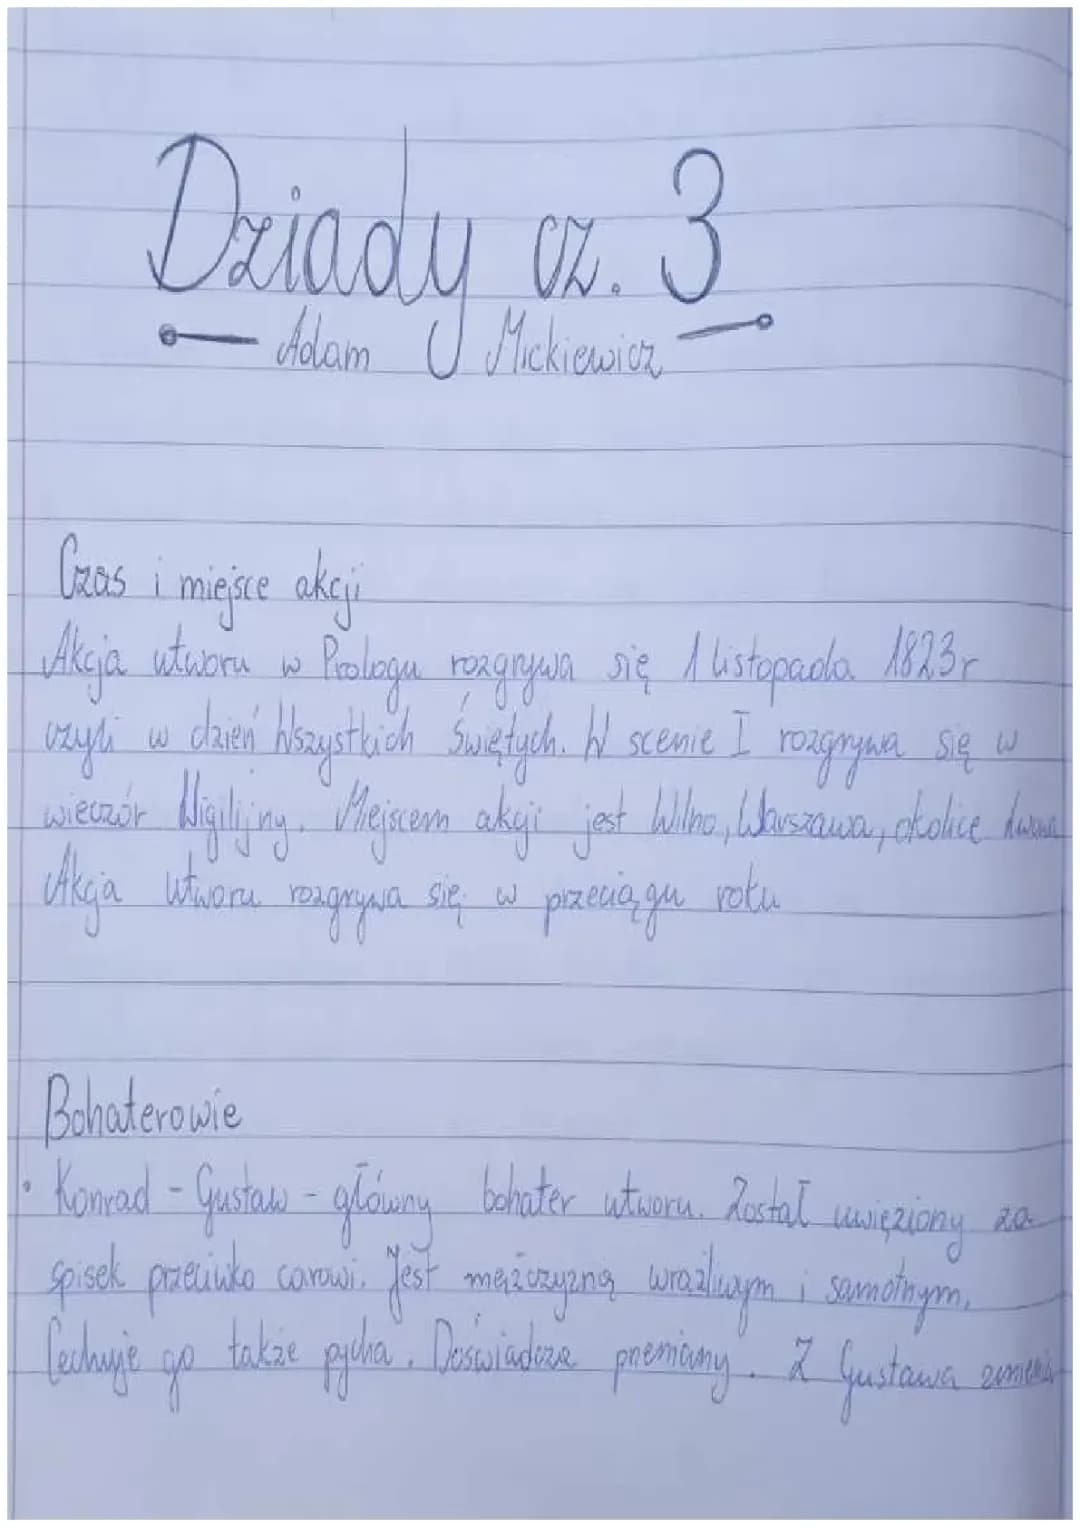 Dziady cz. 3
Adam Mickiewicz
Czas i miejsce akcji
Akcja utworu w Prologu rozgrywa się 1 listopada 1823r
czyli w dzień Wszystkich Świętych. W scenie I rozgrywa się w
wieczór Wigilijny. Miejscem akcji jest Wilno, Warszawa, okolice dworu
Akcja utworu rozgrywa się w przeciągu roku
Bohaterowie
• Konrad - Gustaw - główny bohater utworu. Został uwięziony za
spisek przeciwko carowi. Jest mężczyzną wrażliwym i samotnym.
Cechuje go także pycha. Doświadcza przemiany. Z Gustawa zmienia